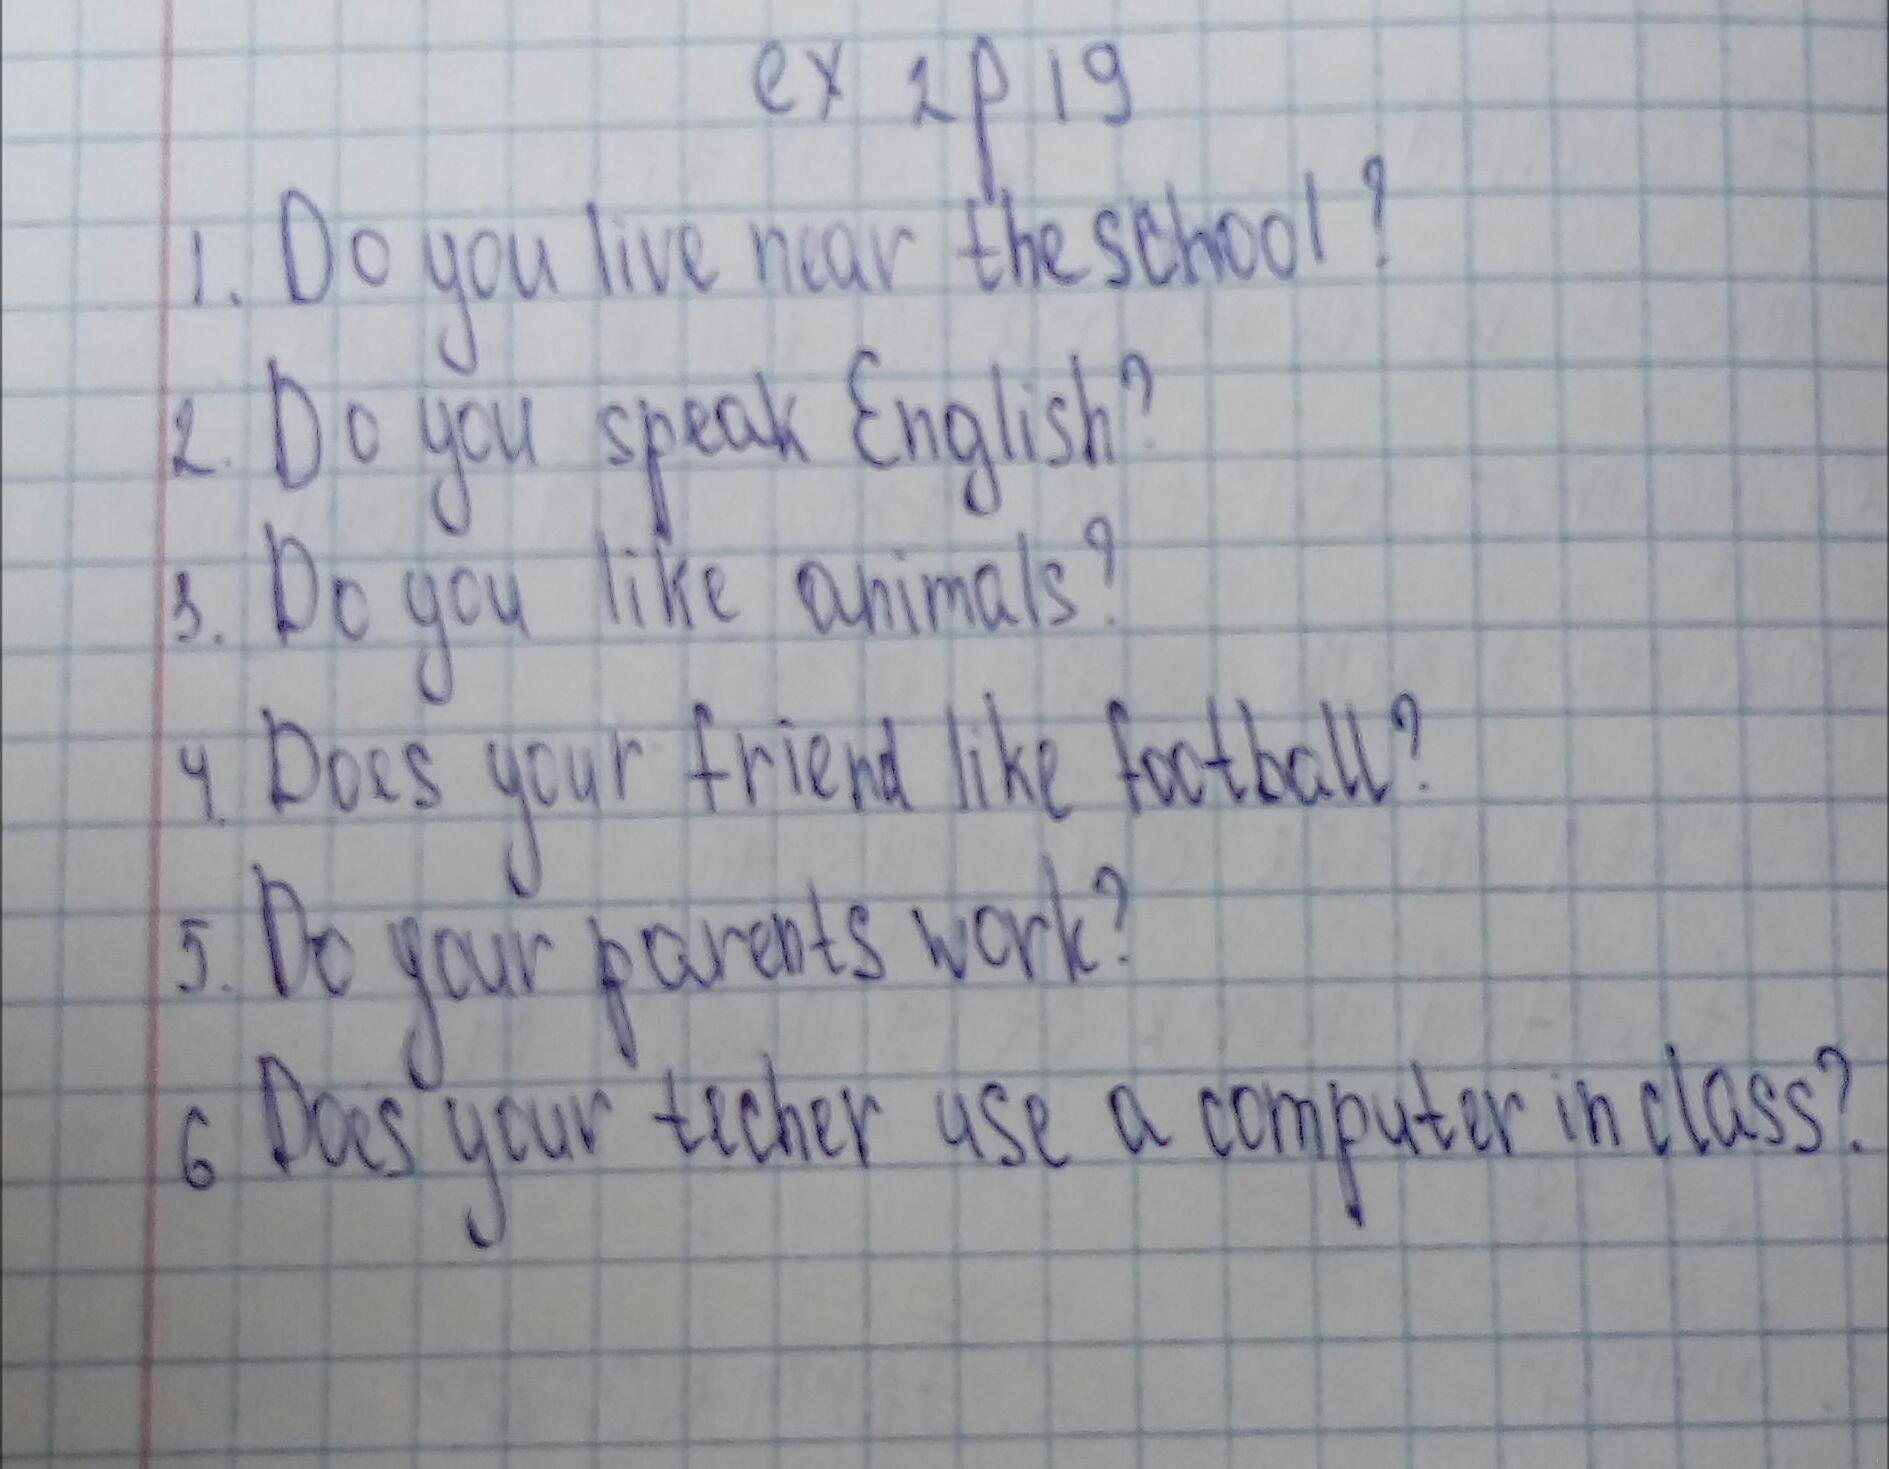 ex 2 p 19
1. Do you live near the school?
2. Do you speak English?
3. Do you like animals?
4. Does your friend like football?
5. Do your parents work?
6 Does your techer use a computer in class?